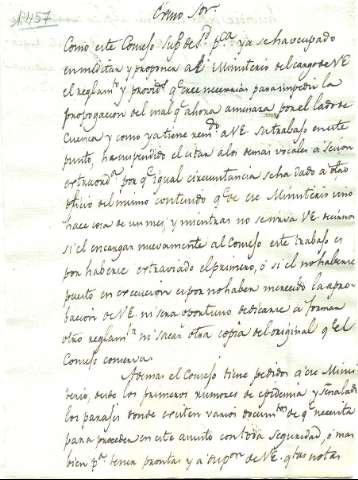 1457
Exmo Sor.
Como este Consejo Supr de Sd. pca ya se ha ocupado
en meditar y proponer al Ministerio del cargo de VE
el reglamto y provids qe cree necesarias para impedir la
propagacion del mal qe ahora amenaza por el lado de
Cuenca y como ya tiene remdo a VE. su trabajo en este
punto, ha suspendido el citar a los demas vocales a sesion
extraorda porqe igual circunstancia se ha dado a otro
oficio del mismo contenido qe de ese Ministerio vino
hace cosa de un mes, y mientras no se sirva VE. decirnos
si el encargar nuevamente al Consejo este trabajo es
por haberse extraviado el primero, ó si el no haberse
puesto en execucion es por no haber merecido la apro-
bacion de VE, ni sera oportuno dedicarse a formar
otro reglamto ni sacar otra copia del original qe el
Consejo conserva.
Ademas el Consejo tiene pedidos a ese Minis-
terio, desde los primeros rumores de epidemia y señalado
los parajes donde existen varios documtos de qe necesita
para proceder en este asunto con toda seguridad, ó mas
bien pa tener prontas y a dispon de VE. qtas notas